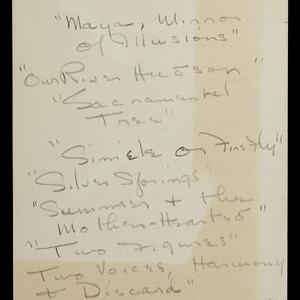 "Maya, Mirror
of Illusions"
"Our River Hudson"
"Sacramental
Tree"
"Simele on Firefly"
"Silver Springs"
"Summer + the
Mother-Hearted"
"Two Figures"
Two Voices, Harmony
+ Discard"